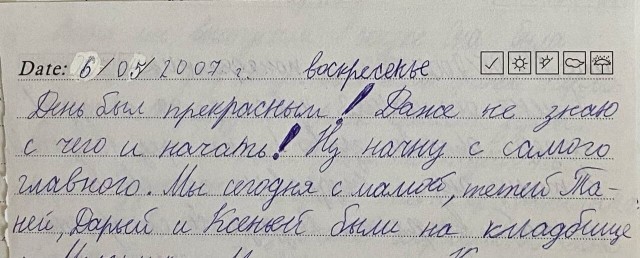 Date: 6/05/2007 г. воскресенье
День был прекрасным! Даже не знаю
с чего и начать! Ну начну с самого
главного. Мы сегодня с мамой, тетей Та-
ней, Дарьей и Ксеньей были на кладбище